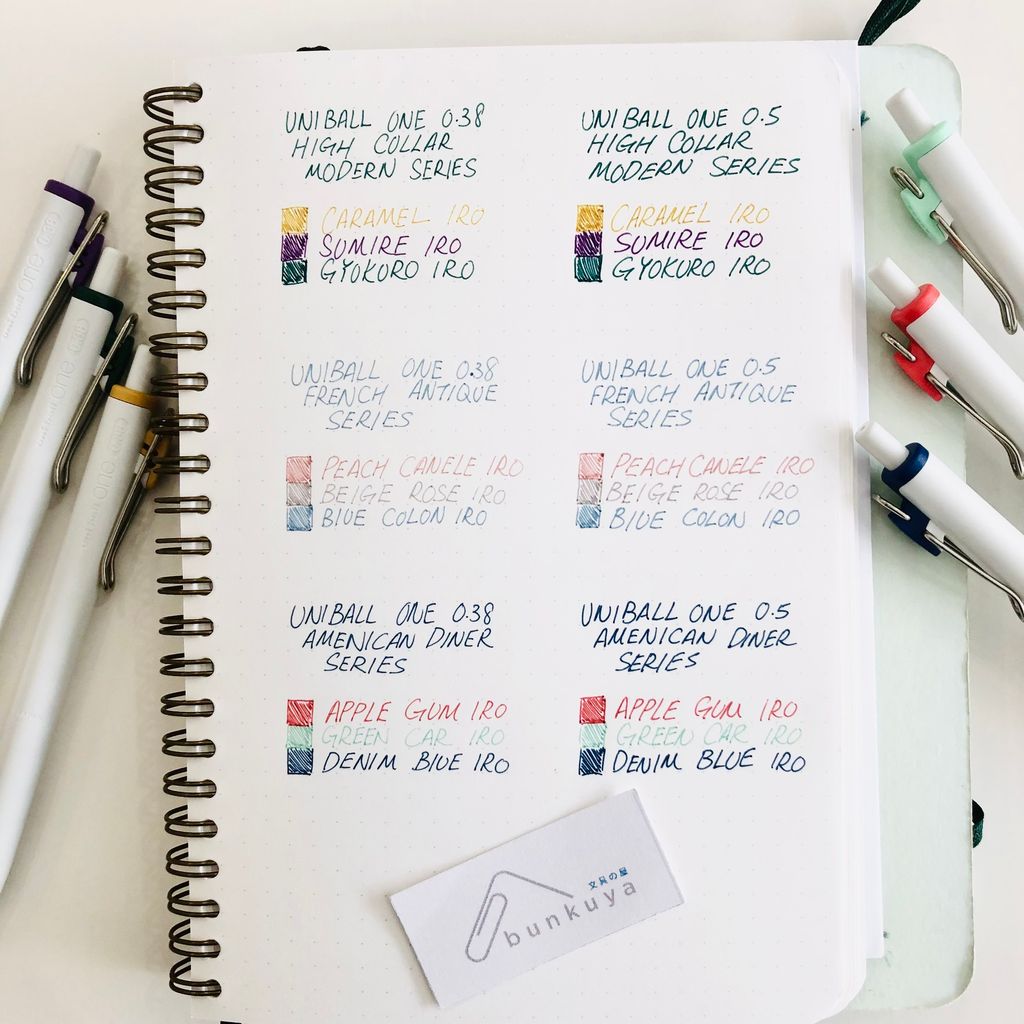 UNIBALL ONE 0.38
HIGH COLLAR
MODERN SERIES
CARAMEL IRO
SUMIRE IRO
GYOKURO IRO
UNIBALL ONE 0.5
HIGH COLLAR
MODERN SERIES
CARAMEL IRO
SUMIRE IRO
GYOKURO IRO
UNIBALL ONE 0.38
FRENCH ANTIQUE
SERIES
PEACH CANELE IRO
BEIGE ROSE IRO
BLUE COLON IRO
UNIBALL ONE 0.5
FRENCH ANTIQUE
SERIES
PEACH CANELE IRO
BEIGE ROSE IRO
BLUE COLON IRO
UNIBALL ONE 0.38
AMERICAN DINER
SERIES
APPLE GUM IRO
GREEN CAR IRO
DENIM BLUE IRO
UNIBALL ONE 0.5
AMERICAN DINER
SERIES
APPLE GUM IRO
GREEN CAR IRO
DENIM BLUE IRO
文具の屋
bunkuya
uni-ball one 0.38
uni-ball one 0.38
uni-ball one